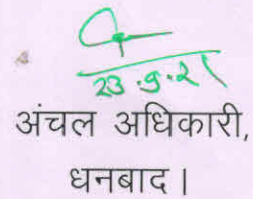 23.9.21
अंचल अधिकारी,
धनबाद।